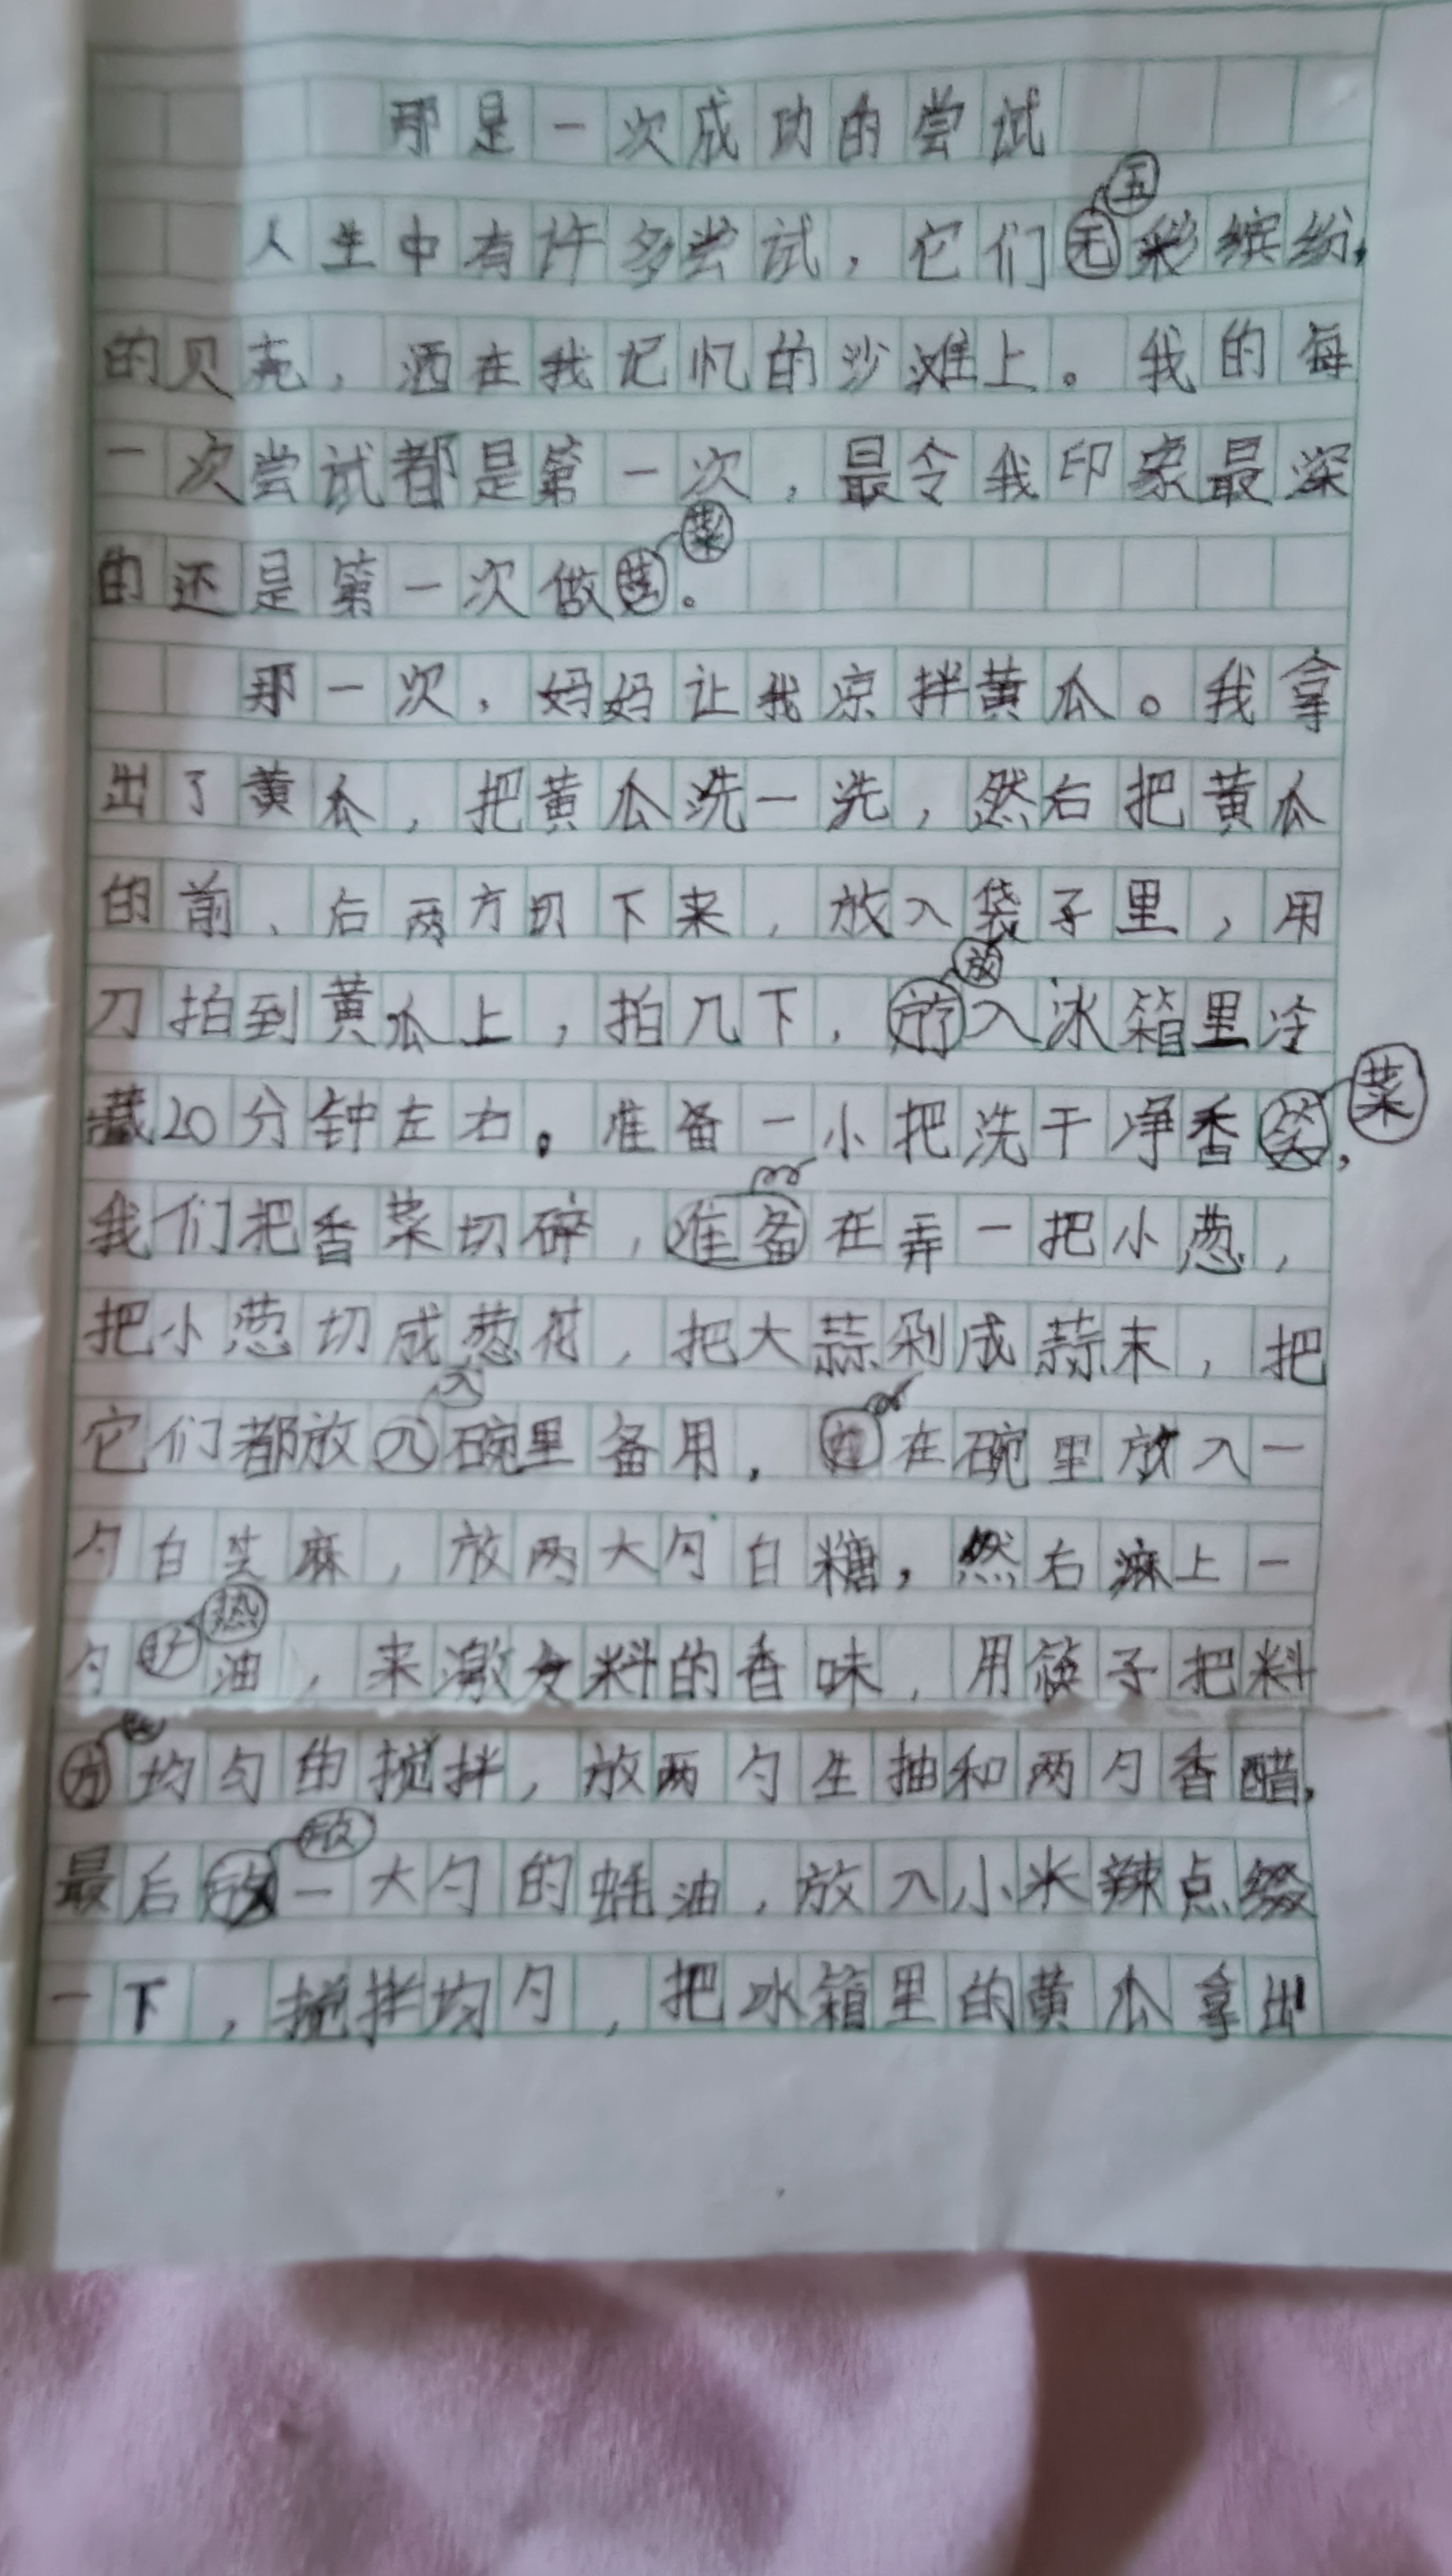 那是一次成功的尝试
五
人生中有许多尝试，它们无彩缤纷，
的贝壳，洒在我记忆的沙滩上。我的每
一次尝试都是第一次，最令我印象最深
菜
的还是第一次做。
那一次，妈妈让我凉拌黄瓜。我拿
出了黄瓜，把黄瓜洗一洗，然右把黄瓜
的前、后两方切下来，放入袋子里，用
放
刀拍到黄瓜上，拍几下，入冰箱里冷
菜
藏20分钟左右。准备一小把洗干净香，
我们把香菜切碎，准备在弄一把小葱，
把小葱切成葱花，把大蒜剁成蒜末，把
入
它们都放入碗里备用，在碗里放入一
勺白芝麻，放两大勺白糖，然右淋上一
热
勺油，来激发料的香味，用筷子把料
均匀的搅拌，放两勺生抽和两勺香醋，
放
最后放一大勺的蚝油，放入小米辣点缀
一下，搅拌均匀，把冰箱里的黄瓜拿出